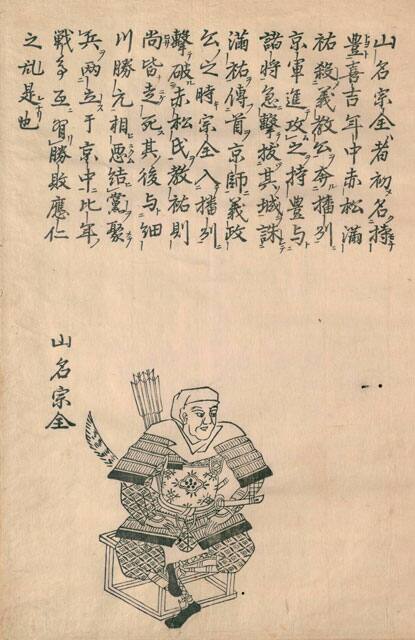 山名宗全者初名持
豊喜吉年中赤松滿
祐殺義教公奔播州
京軍進攻之持豊与
諸將急擊拔其城誅
滿祐傳首京師義政
公之時宗全入播州
擊破赤松氏教祐則
尚皆走死其後与細
川勝元相悪結黨聚
兵兩立于京中比年
戰爭互有勝敗應仁
之乱是也
山名宗全